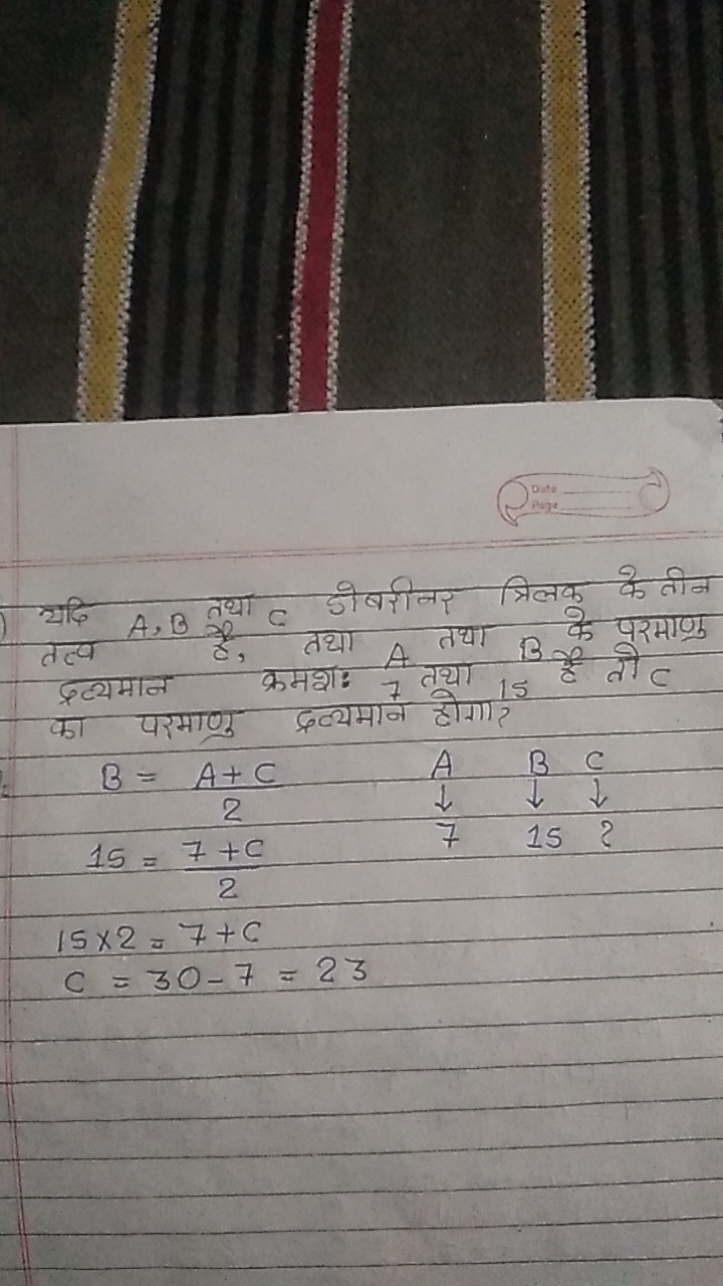 Date
Page
) यदि A, B तथा C डोबरीनर त्रिलक के तीन
तत्व है, तथा A तथा B के परमाणु
द्रव्यमान क्रमशः 7 तथा 15 है तो C
का परमाणु द्रव्यमान होगा?
B = A + C / 2 A B C
↓ ↓ ↓
15 = 7 + C / 2 7 15 ?
15 × 2 = 7 + C
C = 30 - 7 = 23